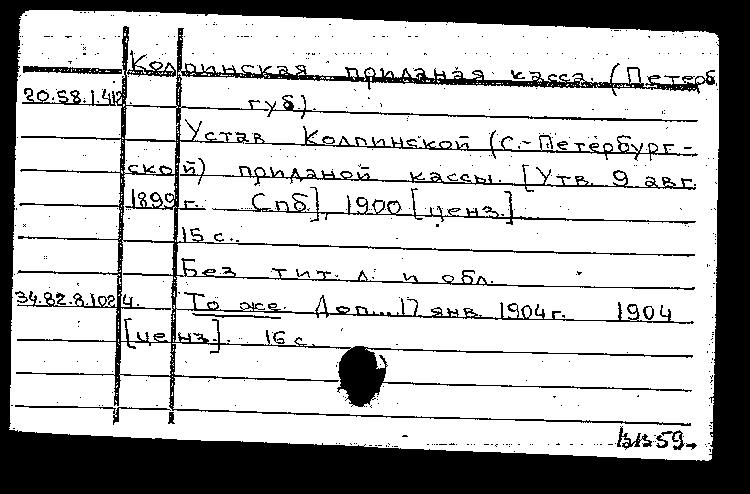 Колпинская приданая касса. (Петерб.
20.58.1.412 губ).
Устав Колпинской (С.-Петербург-
ской) приданой кассы. [Утв. 9 авг.
1899 г. Спб.], 1900 [ценз.]
15 с.
Без тит. л. и обл.
34.82.8.102 ч. То же. Доп... 17 янв. 1904 г. 1904
[ценз.]. 16 с.